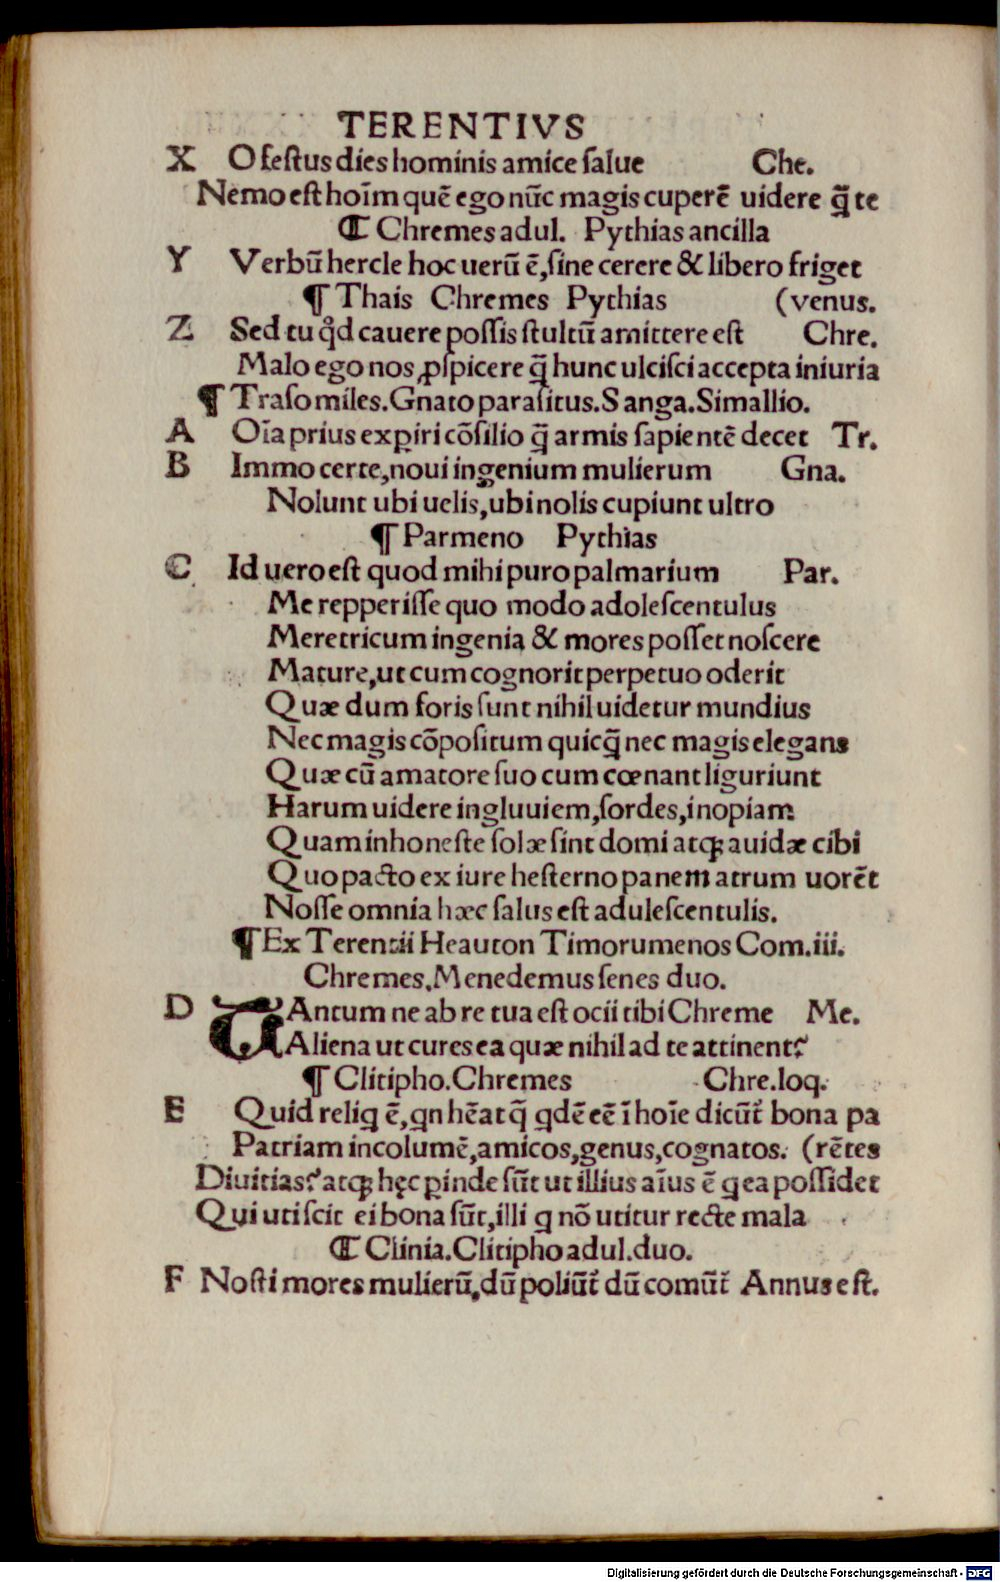 TERENTIVS
X O festus dies hominis amice salue Che.
Nemo est hoīm quē ego nūc magis cuperē uidere q̃ te
⸿ Chremes adul. Pythias ancilla
Y Verbū hercle hoc uerū ē, sine cerere & libero friget
¶ Thais Chremes Pythias (venus.
Z Sed tu qd̛ cauere possis stultū amittere est Chre.
Malo ego nos ꝓspicere q̃ hunc ulcisci accepta iniuria
¶ Traso miles. Gnato parasitus. Sanga. Simallio.
A Oīa prius exꝑiri cōsilio q̃ armis sapientē decet Tr.
B Immo certe, noui ingenium mulierum Gna.
Nolunt ubi uelis, ubi nolis cupiunt ultro
¶ Parmeno Pythias
C Id uero est quod mihi puro palmarium Par.
Me repperisse quo modo adolescentulus
Meretricum ingenia & mores posset noscere
Mature, ut cum cognorit perpetuo oderit
Quæ dum foris sunt nihil uidetur mundius
Nec magis cōpositum quicq̃ nec magis elegans
Quæ cū amatore suo cum cœnant liguriunt
Harum uidere ingluuiem, sordes, inopiam
Quam inhoneste solæ sint domi atqꝫ auidæ cibi
Quo pacto ex iure hesterno panem atrum uorēt
Nosse omnia hæc salus est adulescentulis.
¶ Ex Terentii Heauton Timorumenos Com. iii.
Chremes. Menedemus senes duo.
D TAntum ne ab re tua est ocii tibi Chreme Me.
Aliena ut cures ea quæ nihil ad te attinent?
¶ Clitipho. Chremes Chre. loq.
E Quid reliq ē, qn hēat q̃ qdē eē ī hoīe dicūt᷑ bona pa
Patriam incolumē, amicos, genus, cognatos. (rētes
Diuitias? atqꝫ hęc ꝑinde sūt ut illius aīus ē q ea possidet
Qui uti scit ei bona sūt, illi q nō utitur recte mala
⸿ Clinia. Clitipho adul. duo.
F Nosti mores mulierū, dū poliūt᷑ dū comūt᷑ Annus est.
Digitalisierung gefördert durch die Deutsche Forschungsgemeinschaft - DFG